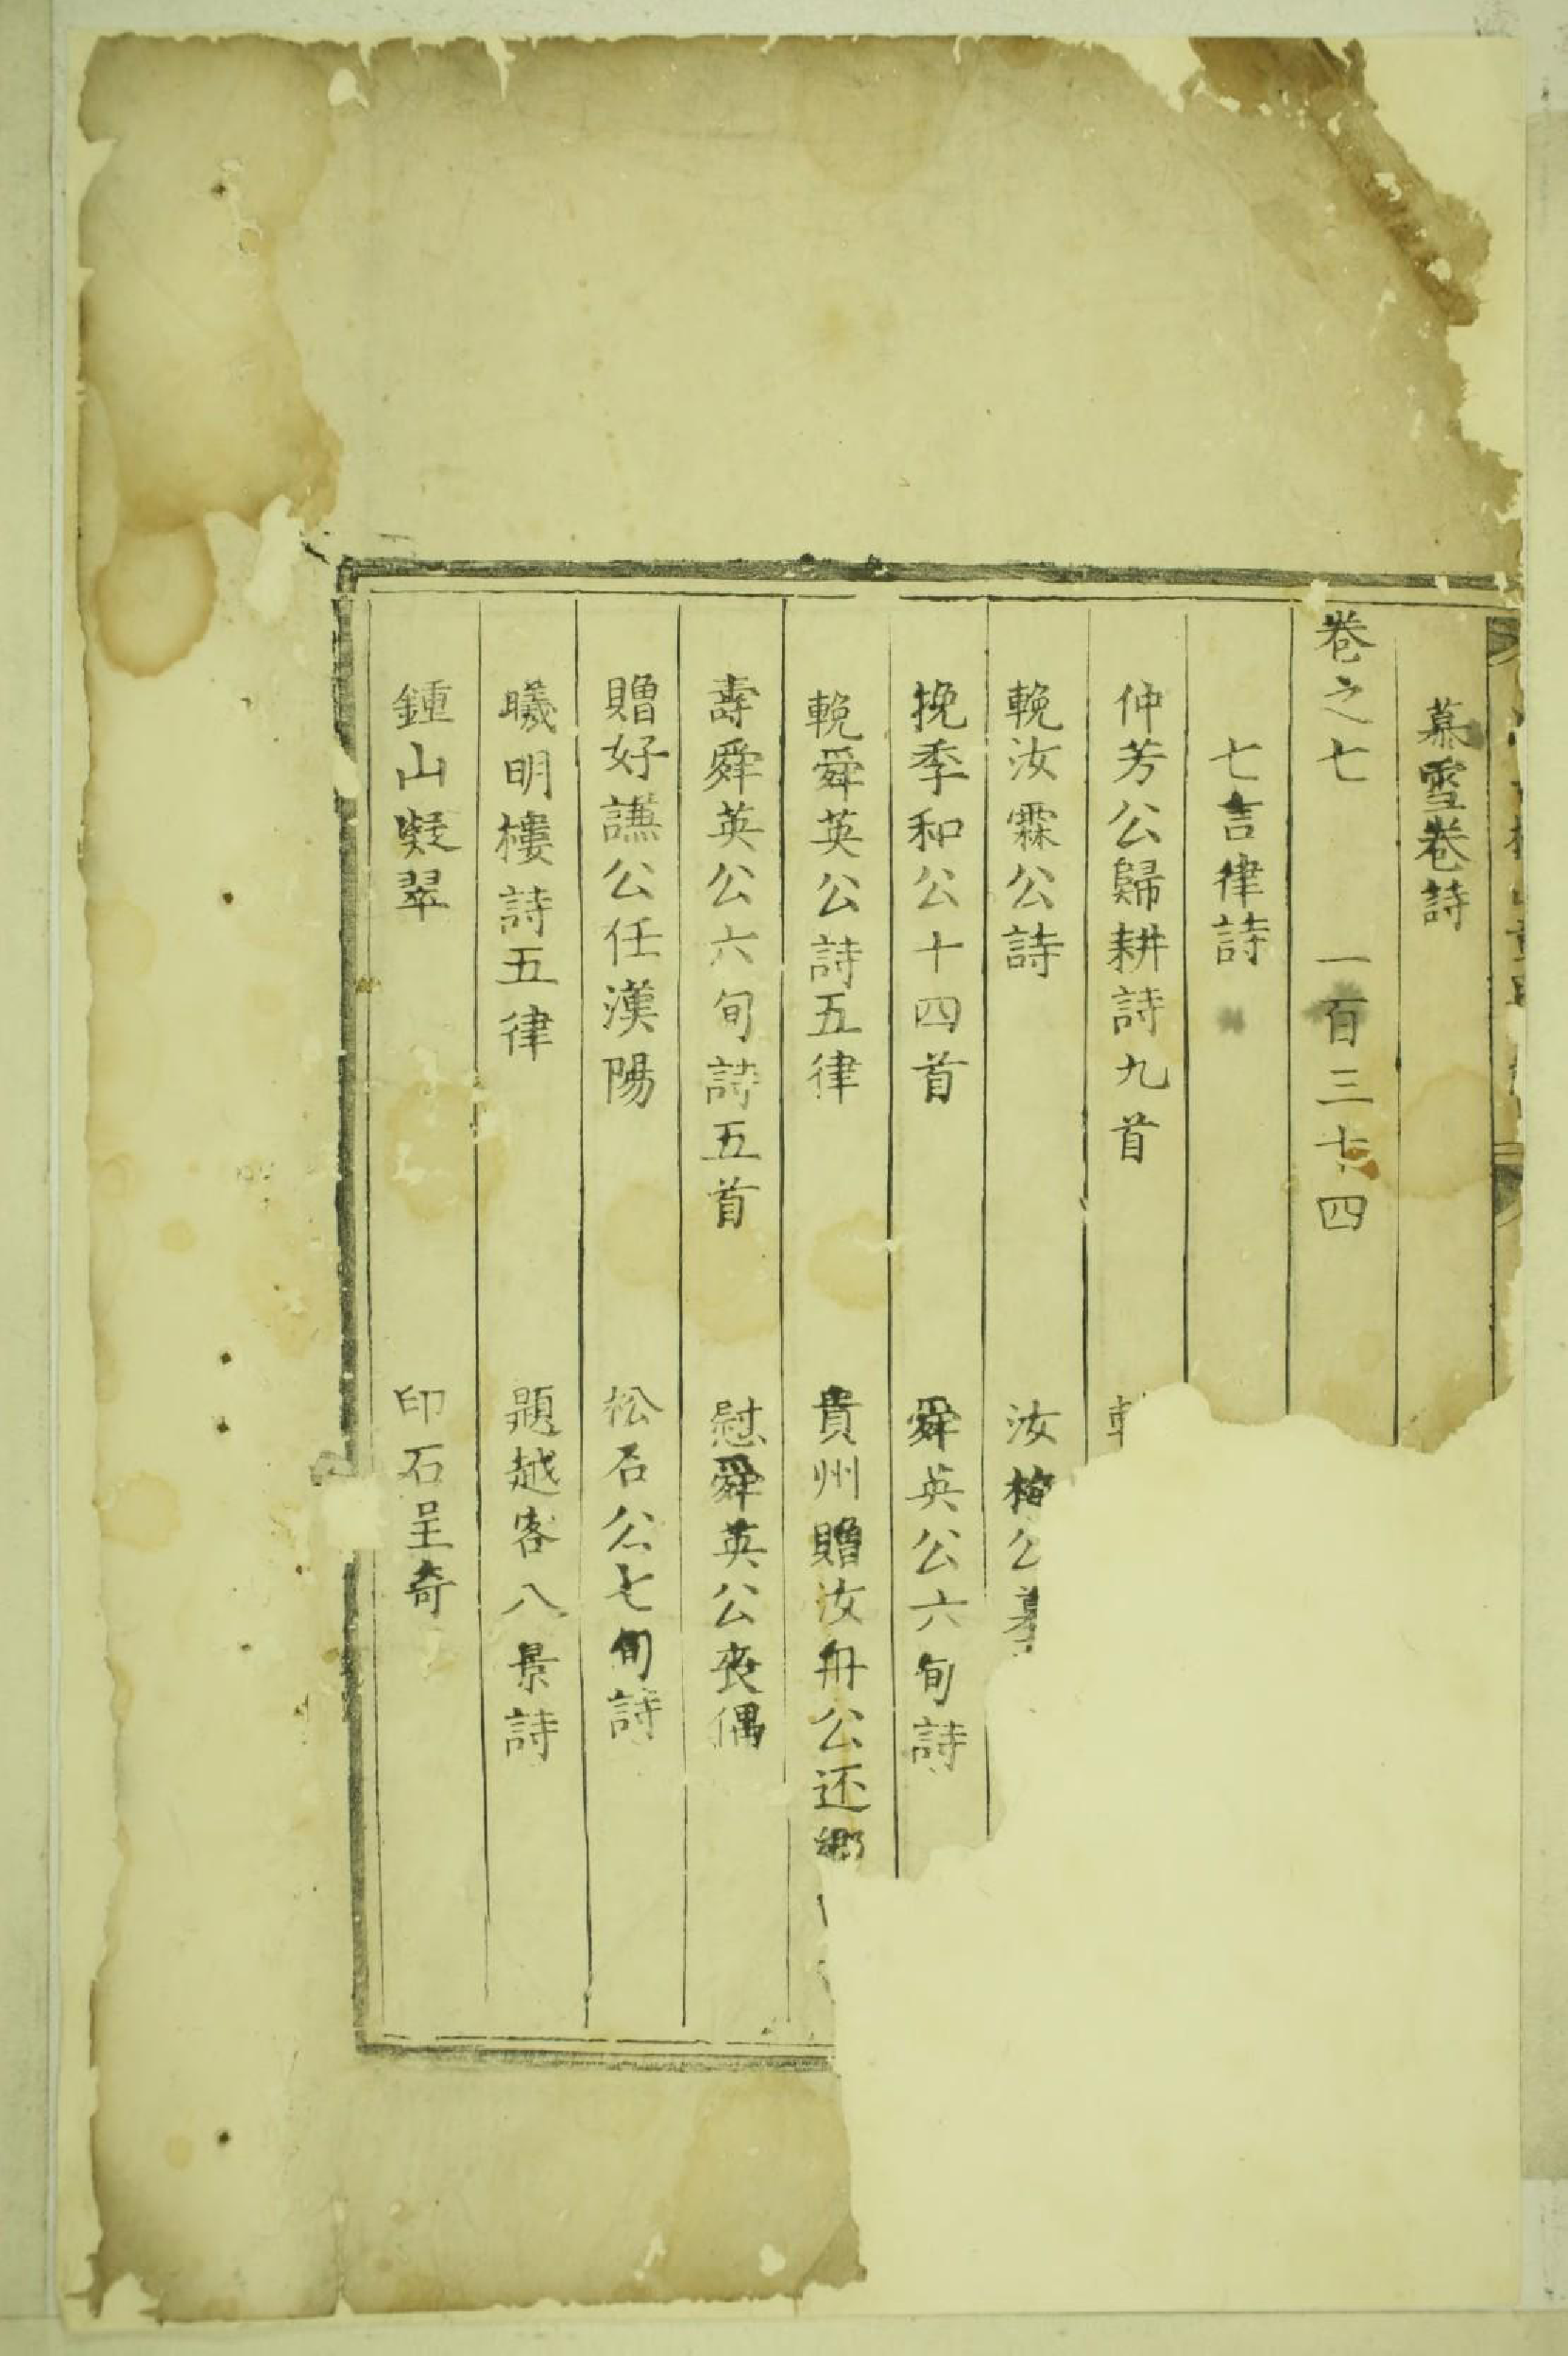 慕雪卷詩
卷之七 一百三十四
七言律詩
仲芳公歸耕詩九首
輓汝霖公詩 汝梅公墓
挽季和公十四首 舜英公六旬詩
輓舜英公詩五律 貴州贈汝舟公还鄉
壽舜英公六旬詩五首 慰舜英公丧偶
贈好謙公任漢陽 松石公七旬詩
曦明樓詩五律 題越客八景詩
鍾山凝翠 印石呈奇